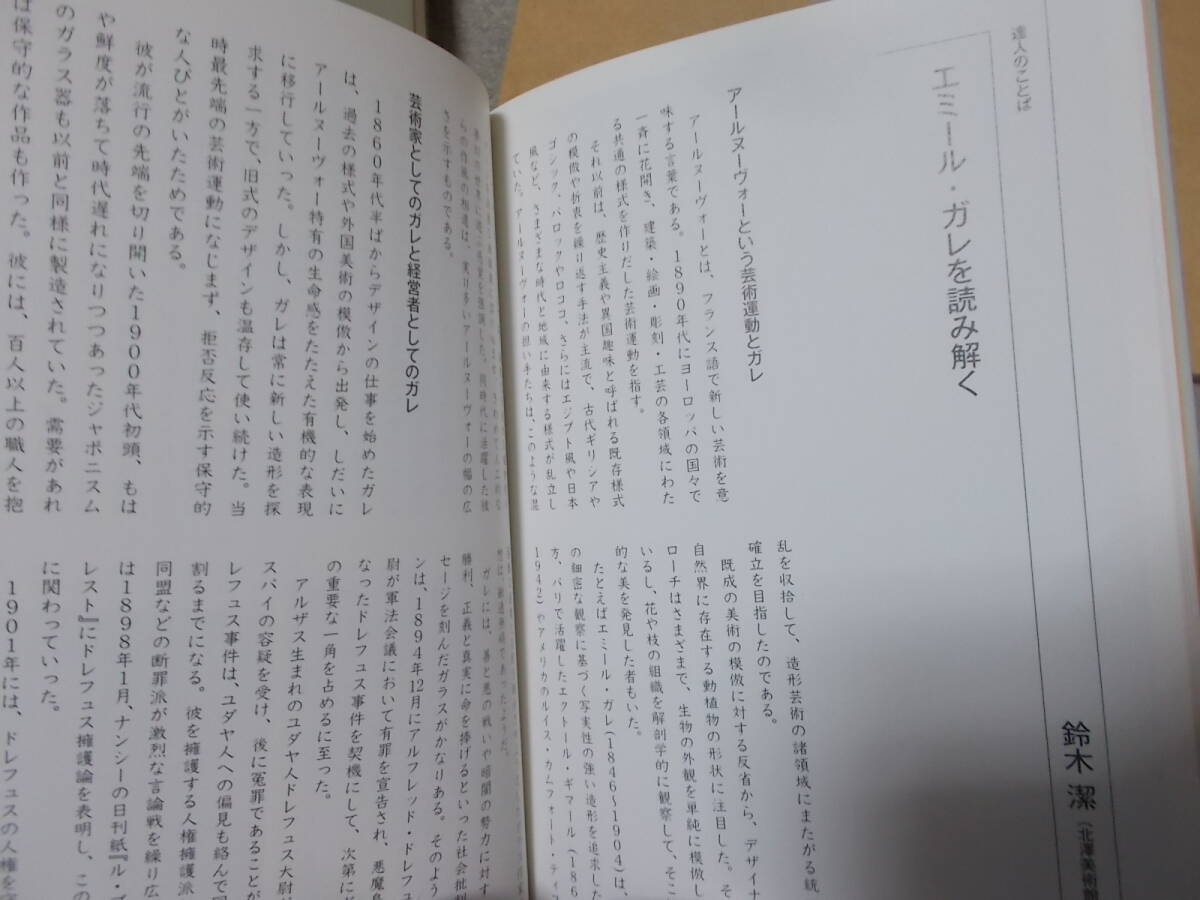 達人のことば
エミール・ガレを読み解く
鈴木 潔
アールヌーヴォーという芸術運動とガレ
アールヌーヴォーとは、フランス語で新しい芸術を意
味する言葉である。1890年代にヨーロッパの国々で
一斉に花開き、建築・絵画・彫刻・工芸の各領域にわた
る共通の様式を作りだした芸術運動を指す。
それ以前は、歴史主義や異国趣味と呼ばれる既存様式
の模倣や折衷を繰り返す手法が主流で、古代ギリシアや
ゴシック、バロックやロココ、さらにはエジプト風や日本
風など、さまざまな時代と地域に由来する様式が乱立し
ていた。アールヌーヴォーの担い手たちは、このような混
乱を収拾して、造形芸術の諸領域にまたがる統
確立を目指したのである。
既成の美術の模倣に対する反省から、デザイナ
自然界に存在する動植物の形状に注目した。そ
ローチはさまざまで、生物の外観を単純に模倣し
いるし、花や枝の組織を解剖学的に観察して、そこ
的な美を発見した者もいた。
たとえばエミール・ガレ(1846〜1904)は、
の細密な観察に基づく写実性の強い造形を追求した
方、パリで活躍したエクトール・ギマール(186
1942)やアメリカのルイス・カムフォート・ティフ
らの作風の相違は、実り多いアールヌーヴォーの幅の広
さを示すものである。
芸術家としてのガレと経営者としてのガレ
1860年代半ばからデザインの仕事を始めたガレ
は、過去の様式や外国美術の模倣から出発し、しだいに
アールヌーヴォー特有の生命感をたたえた有機的な表現
に移行していった。しかし、ガレは常に新しい造形を探
求する一方で、旧式のデザインも温存して使い続けた。当
時最先端の芸術運動になじまず、拒否反応を示す保守的
な人びとがいたためである。
彼が流行の先端を切り開いた1900年代初頭、もは
や鮮度が落ちて時代遅れになりつつあったジャポニスム
のガラス器も以前と同様に製造されていた。需要があれ
ば保守的な作品も作った。彼には、百人以上の職人を抱
ガレには、善と悪の戦いや暗闇の勢力に対す
勝利、正義と真実に命を捧げるといった社会批判
セージを刻んだガラスがかなりある。そのよう
ンは、1894年12月にアルフレッド・ドレフュ
尉が軍法会議において有罪を宣告され、悪魔島
なったドレフュス事件を契機にして、次第にガ
の重要な一角を占めるに至った。
アルザス生まれのユダヤ人ドレフュス大尉
スパイの容疑を受け、後に冤罪であることが
レフュス事件は、ユダヤ人への偏見も絡んで
割るまでになる。彼を擁護する人権擁護派
同盟などの断罪派が激烈な言論戦を繰り広
は1898年1月、ナンシーの日刊紙『ル・プ
レスト』にドレフュス擁護論を表明し、この
に関わっていった。
1901年には、ドレフュスの人権を